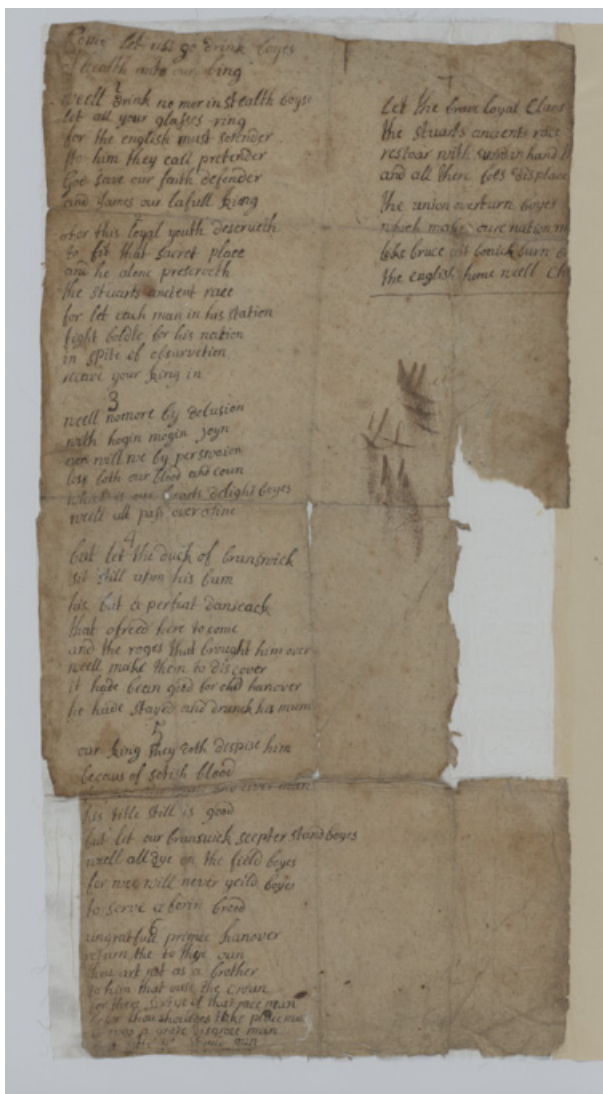 Come let uss go drink boyes
A health unto our king
1
weell drink no mor in stealth boyse
let all your glasses ring
for the english must serender
to him they call pretender
God save our faith defender
and James our lafull king
for this loyal youth deserveth
to fit that sacret place
and he alone preserveth
the stuarts ancient race
for let each man in his station
fight boldle for his nation
in spite of
your king in
3
weell nomore by delusion
with hogin mogin joyn
nor will we by perswaion
loss both our blood and coun
our hearts delight boyes
weell all pass over
4
but let the duck of brunswick
sit still upon his bum
his but a perfeat
that ofreed here to come
and the roges that brought him over
weell make them to discover
it hade been good for old hanover
he hade stayed and drunk his mum
5
our king they doth dispise him
becaus of sotish blood
man
his title still is good
but let our brunswick scepter stand boyes
weell all dye on the field boyes
for wee will never yeild boyes
to serve a breed
6
ungratfull prince hanover
return the to thy oun
thou art not as a brother
to him that ows the croun
of that race man
man
man
7
Let the brave loyal Clans
the stuarts ancients race
restoar with sword in hand
and all there foes displace
The union overturn boyes
which makes oure nation
like bruce att burn
the english home weell